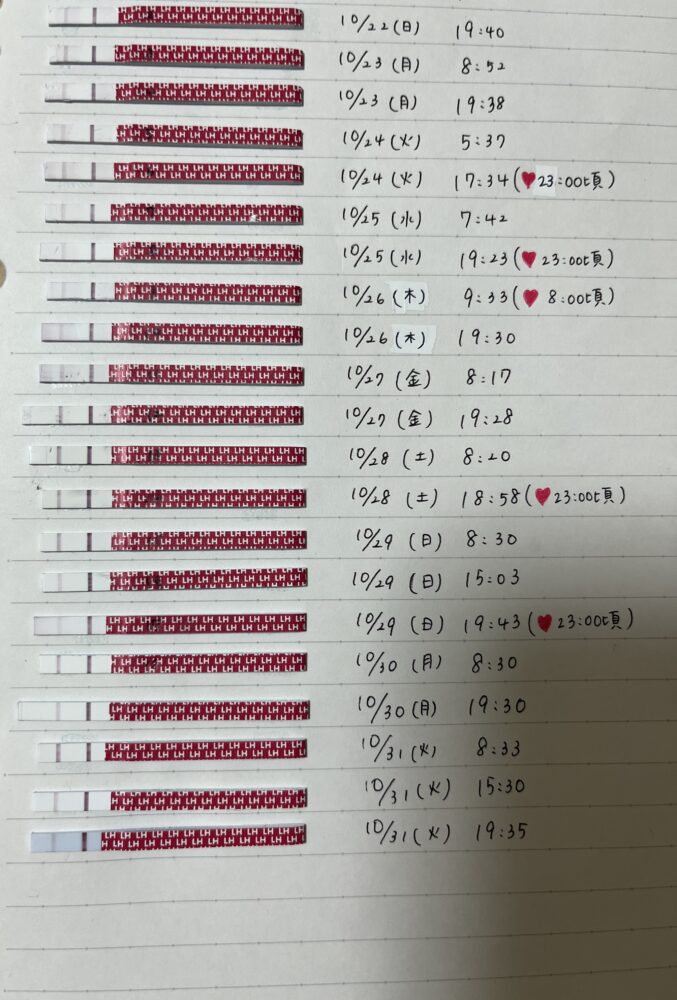 10/22(日) 19:40
10/23(月) 8:52
10/23(月) 19:38
10/24(火) 5:37
10/24(火) 17:34(♥23:00頃)
10/25(水) 7:42
10/25(水) 19:23(♥ 23:00頃)
10/26(木) 9:33(♥ 8:00頃)
10/26(木) 19:30
10/27(金) 8:17
10/27(金) 19:28
10/28(土) 8:20
10/28(土) 18:58(♥23:00頃)
10/29(日) 8:30
10/29(日) 15:03
10/29(日) 19:43(♥23:00頃)
10/30(月) 8:30
10/30(月) 19:30
10/31(火) 8:33
10/31(火) 15:30
10/31(火) 19:35